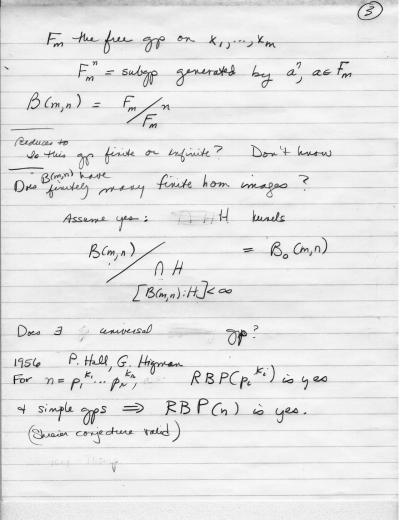 3
F_m the free gp on x_1,...,x_m
F_m^n = subgp generated by a^n, a∈F_m
B(m,n) = F_m / F_m^n
Reduces to
Is this gp finite or infinite? Don't know
B(m,n) have
Does finitely many finite hom images?
Assume yes: H kernels
B(m,n) / ∩ H = B_0(m,n)
[B(m,n):H]<∞
Does ∃ universal gp?
1956 P. Hall, G. Higman
For n = p_1^{k_1}...p_r^{k_r}, RBP(p_i^{k_i}) is yes
+ simple gps ⇒ RBP(n) is yes.
(Shreier conjecture valid)